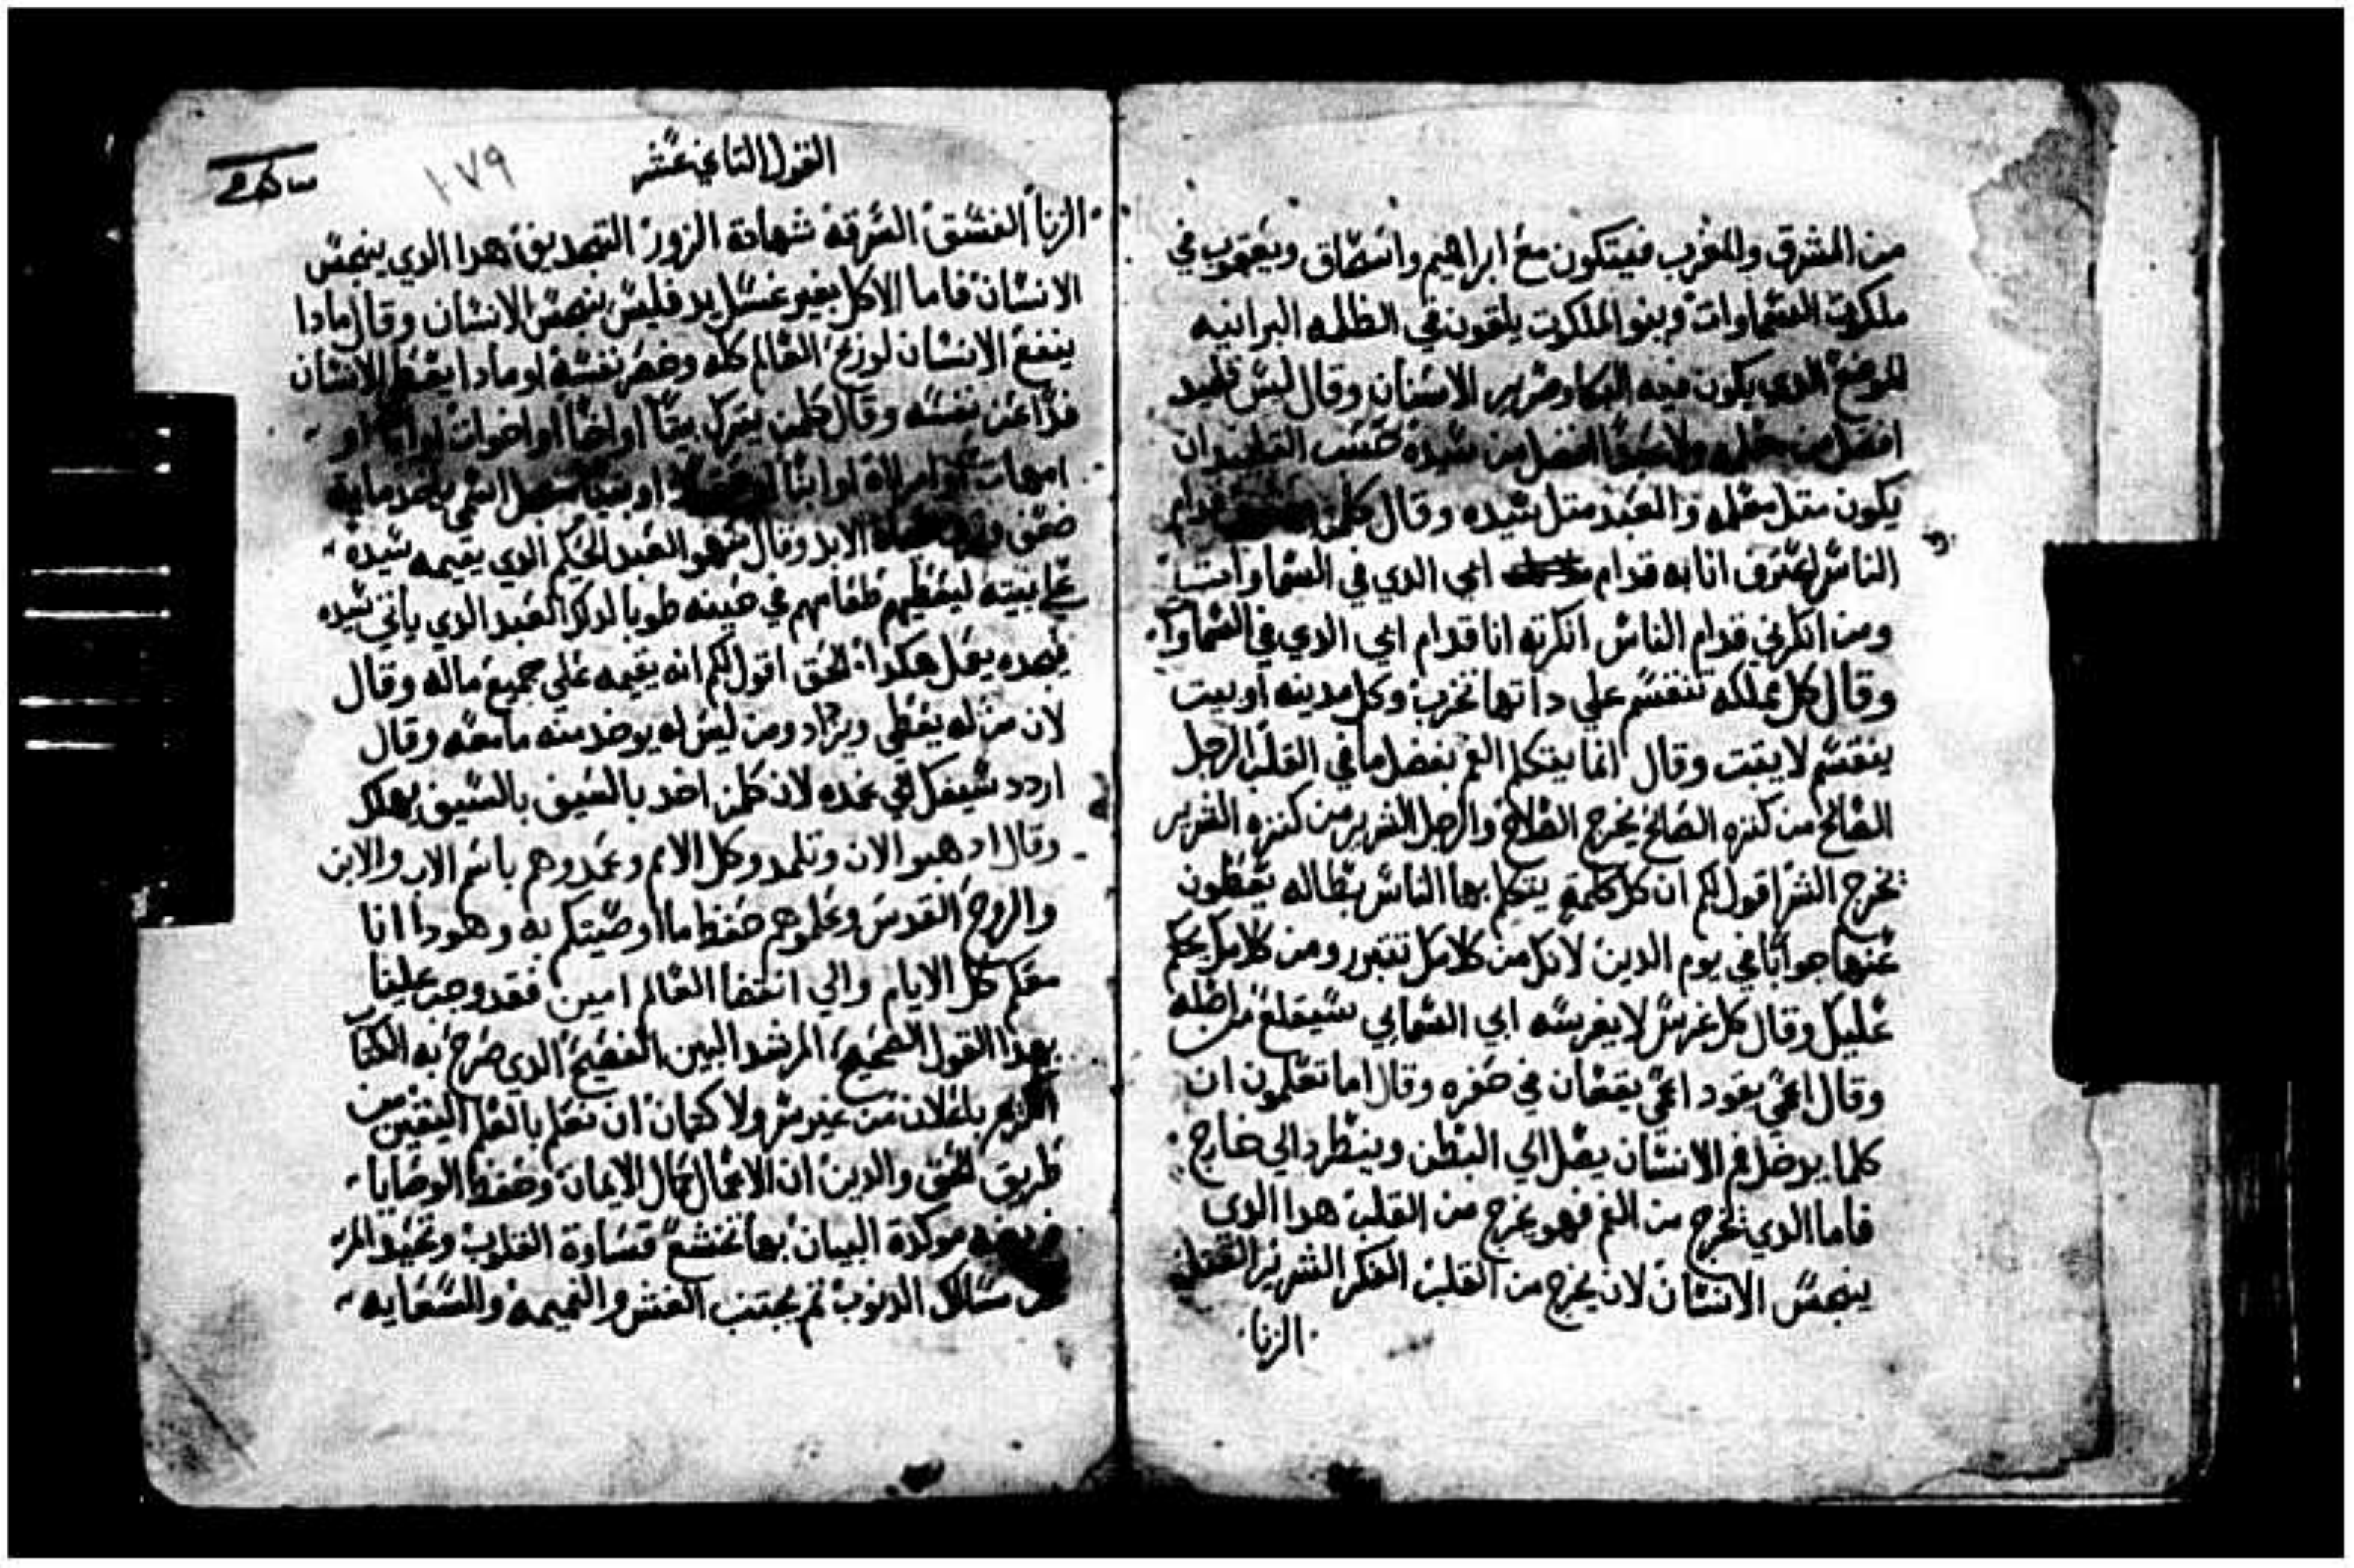 من المشرق والمغرب فيتكون مع ابراهيم واسحاق ويعقوب في
ملكوت السماوات وبنو الملكوت يلقون في الظلمه البرانيه
الموضع الدي يكون فيه البكا وصرير الاسنان وقال ليس تلميد
افضل من معلمه ولا عبدا افضل من سيده حسب التلميد ان
يكون متل معلمه والعبد متل سيده وقال كلمن قدام
الناس اعترف انا به قدام ابي الدي في السماوات
ومن انكرني قدام الناس انكرته انا قدام ابي الدي في السماوات
وقال كل مملكه تنقسم علي داتها تخرب وكل مدينه او بيت
ينقسم لا يتبت وقال انما يتكلم الفم بفضل ما في القلب الرجل
الصالح من كنزه الصالح يخرج الصلاح والرجل الشرير من كنزه الشرير
يخرج الشر اقول لكم ان كل كلمة يتكلم بها الناس بطاله يعطون
عنها جوابا في يوم الدين لانك من كلامك تتبرر ومن كلامك يحكم
عليك وقال كل غرس لا يغرسه ابي السمايي سيقلع من اصله
وقال اعمي يقود اعمي يقعان في حفره وقال اما تعلمون ان
كلما يدخل فم الانسان يصل الي البطن وينطرد الي خارج
فاما الدي يخرج من الفم فهو يخرج من القلب هدا الدي
ينجس الانسان لان يخرج من القلب الفكر الشرير القتل
الزنا
القول التاني عشر
١٠٧٩
الزنا الفسق السرقه شهادة الزور التجديف هدا الدي ينجس
الانسان فاما الاكل بغير غسل يد فليس ينجس الانسان وقال مادا
ينفع الانسان لو ربح العالم كله وخسر نفسه او مادا يعطي الانسان
فدا عن نفسه وقال كلمن يترك بيتا او اخا او اخوات او ابا او
امهات او امراة او ابنا او حقلا او بيتا من اجل اسمي ياخد مايه
ضعف حياة الابد وقال من هو العبد الحكيم الدي يقيمه سيده
علي بيته ليعطيهم طعامهم في حينه طوبا لدلك العبد الدي ياتي سيده
فيجده يعمل هكدا الحق اقول لكم انه يقيمه علي جميع ماله وقال
لان من له يعطي ويزاد ومن ليس له يوخد منه ما معه وقال
اردد سيفك الي غمده لان كلمن اخد بالسيف بالسيف يهلك
وقال ادهبو الان وتلمدو كل الامم وعمدوهم باسم الاب والابن
والروح القدس وعلموهم حفظ ما اوصيتكم به وهودا انا
معكم كل الايام والي انقضا العالم امين فقد وجب علينا
بهدا القول الصحيح المرشد البين الفصيح الدي صرح به الكتاب
الكريم باعلان من غير سر ولا كتمان ان نعلم بالعلم اليقين من
طريق الحق والدين ان الاعمال كمال الايمان وحفظ الوصايا
فريضه موكدة البيان بها تخشع قساوة القلوب وتحيد المر
عن مسالك الدنوب تم يجتنب الغش والنميمه والسعايه